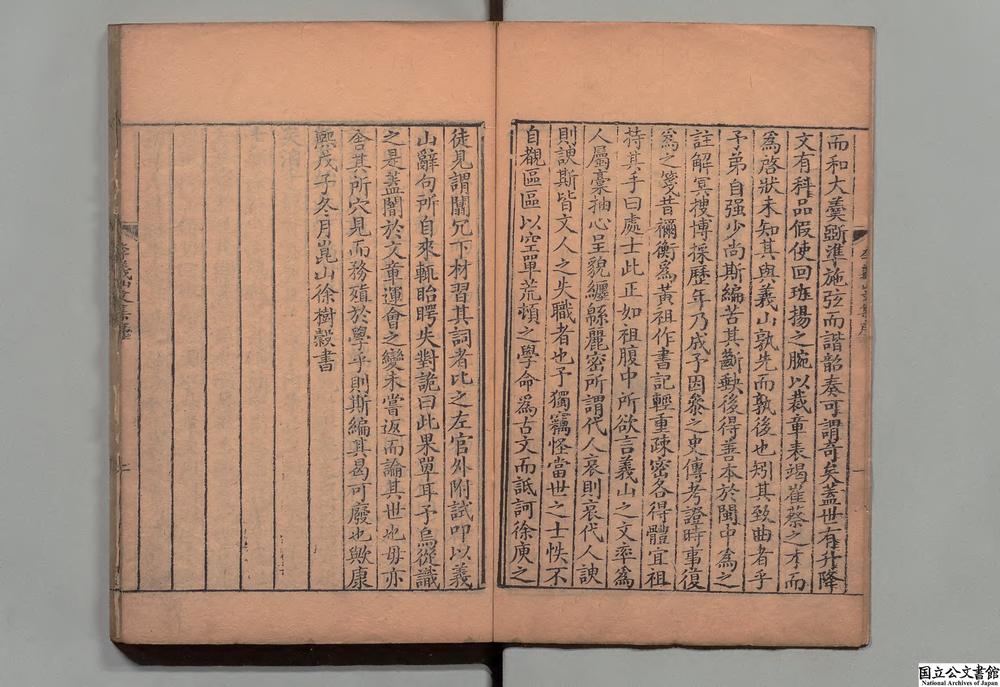 而和大羹斵準施弦而諧韶奏可謂奇矣蓋世有升降
文有科品假使回班揚之腕以裁章表竭崔蔡之才而
為啓狀未知其與義山孰先而孰後也矧其致曲者乎
予弟自强少尚斯編苦其斷缺後得善本於閩中為之
註解冥搜博採歷年乃成予因叅之史傳考證時事復
為之箋昔禰衡為黃祖作書記輕重疎密各得體宜祖
持其手曰處士此正如祖腹中所欲言義山之文率為
人屬稾抽心呈貌纏緜麗密所謂代人哀則哀代人諛
則諛斯皆文人之失職者也予獨竊怪當世之士怢不
自觀區區以空單荒頓之學命為古文而詆訶徐庾之
徒見謂闒冗下材習其詞者比之左官外附試叩以義
山辭句所自來輒眙瞠失對詭曰此果單耳予烏從識
之是蓋闇於文章運會之變未嘗返而論其世也毋亦
舍其所穴見而務殖於學乎則斯編其曷可廢也歟康
熙戊子冬月崑山徐樹穀書
國立公文書館
National Archives of Japan